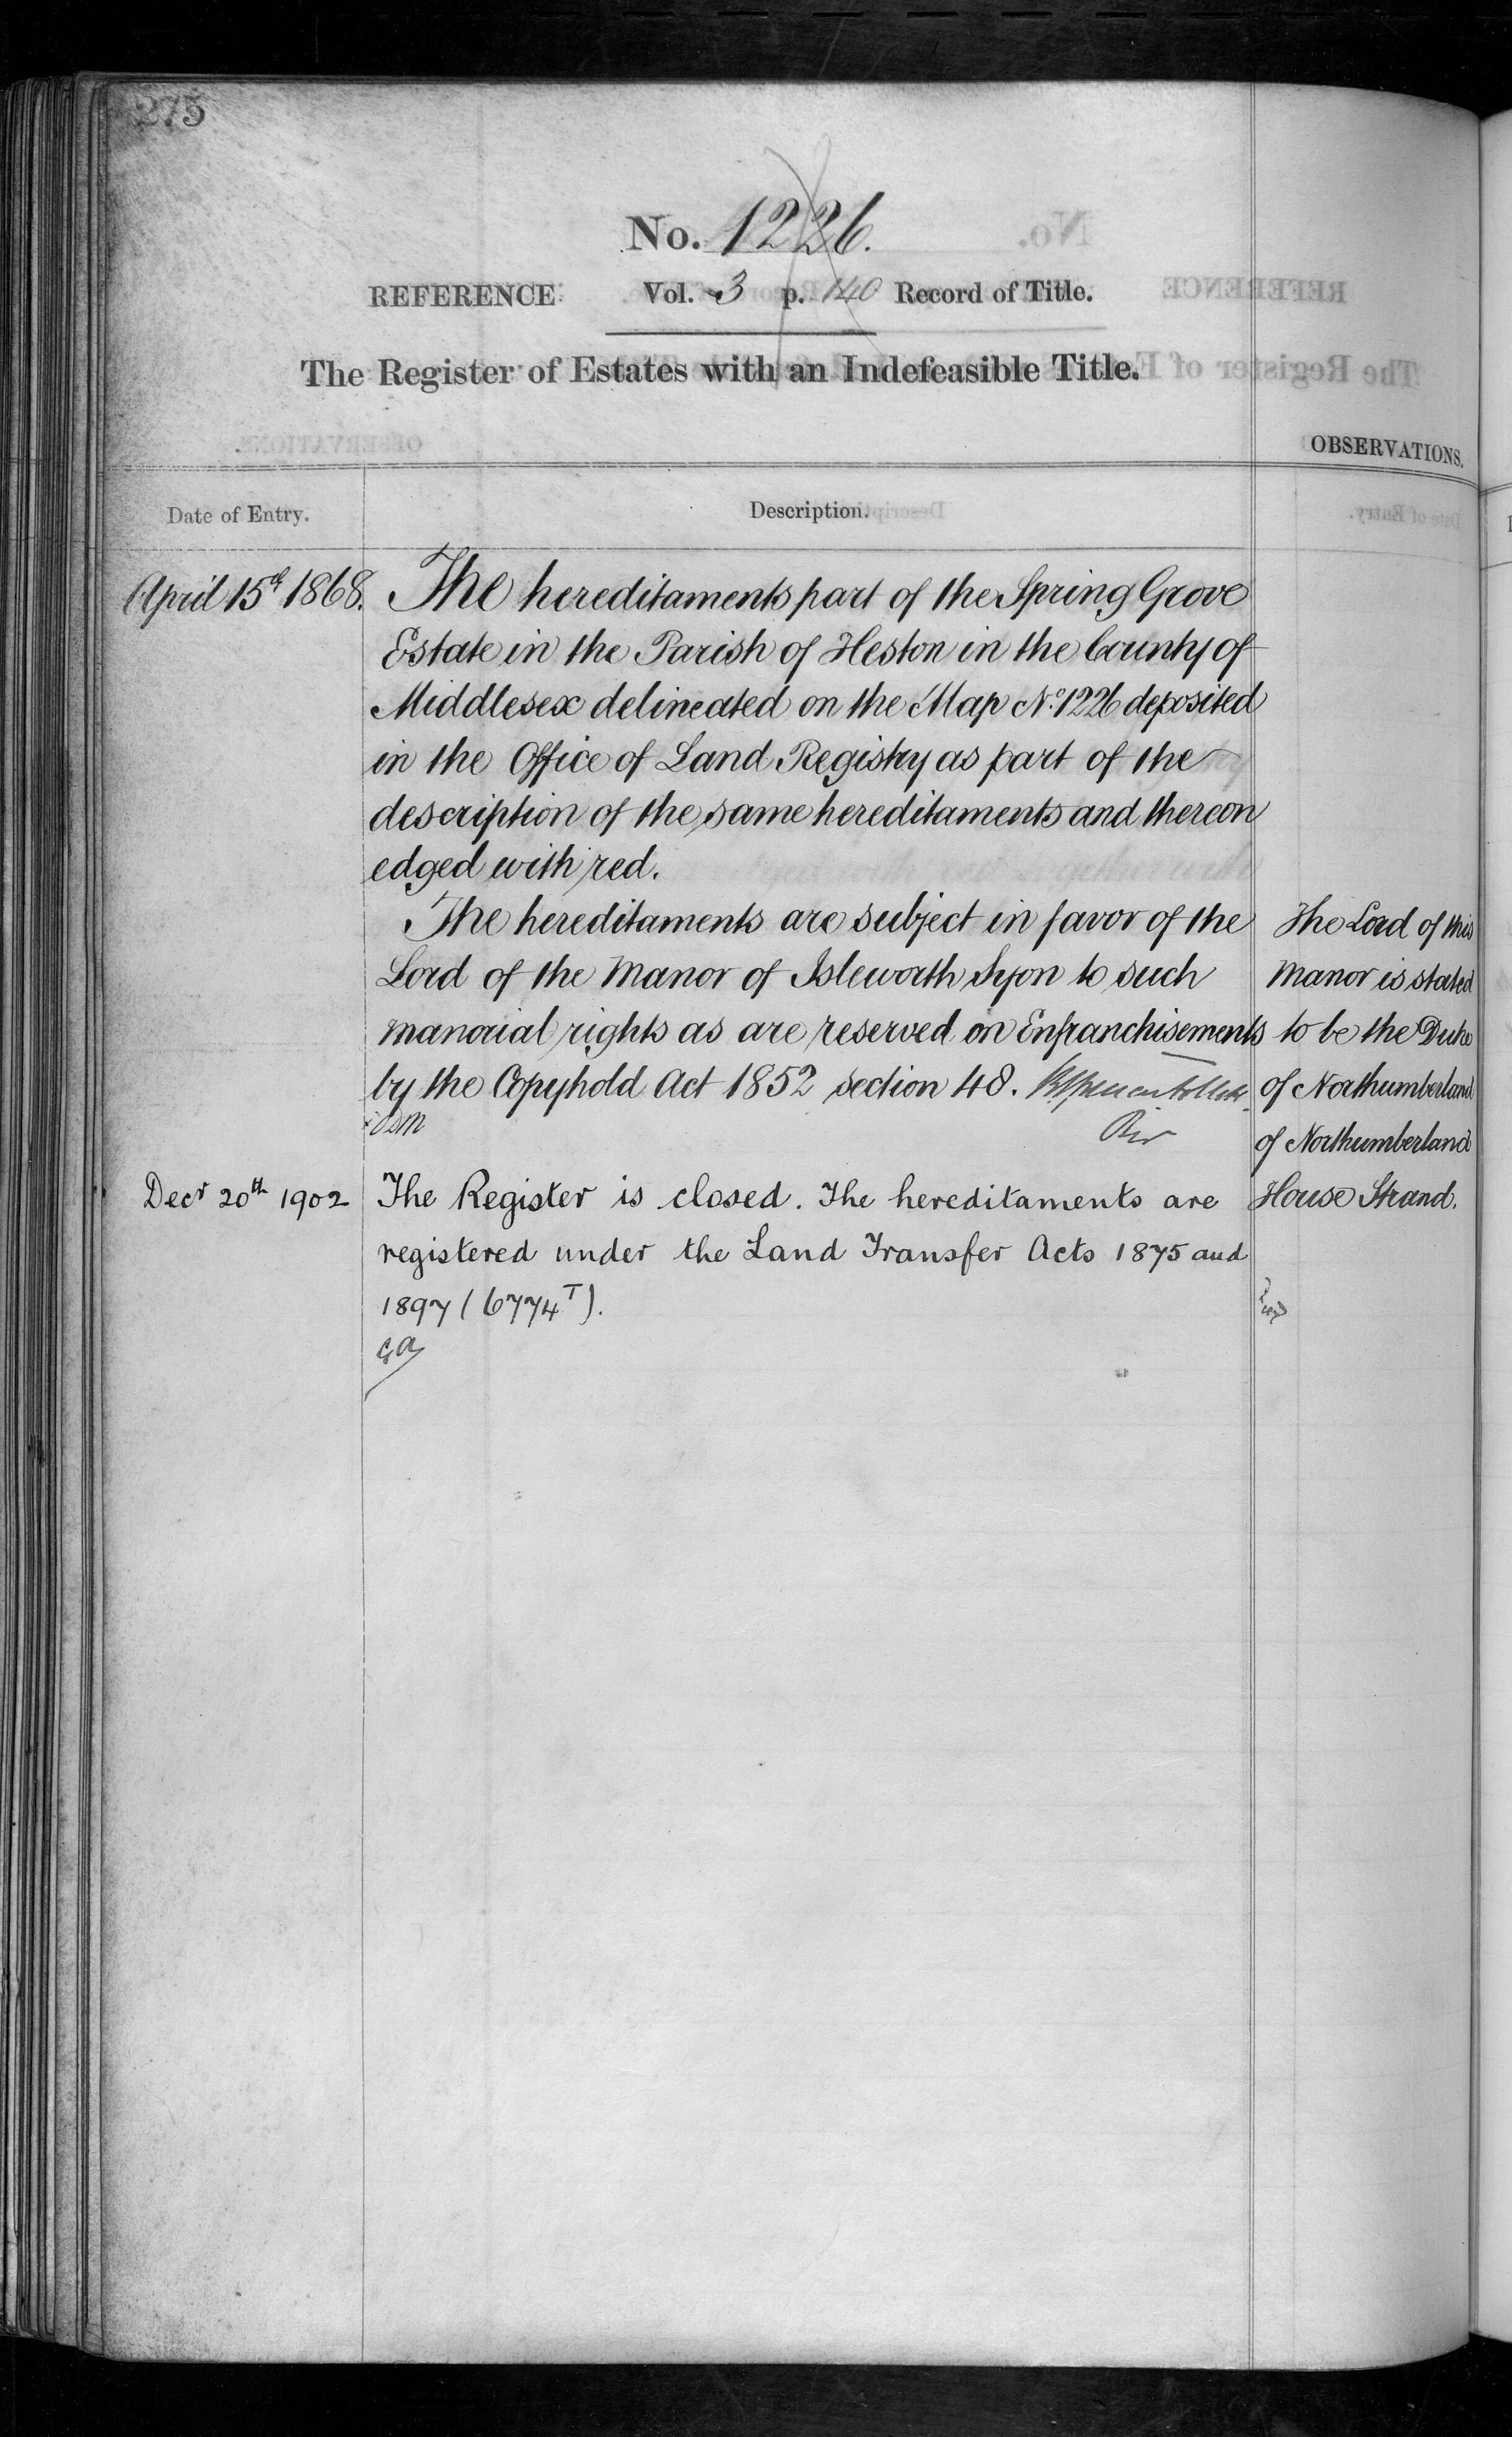 275
No. 1226.
REFERENCE Vol. 3 p. 140 Record of Title.
The Register of Estates with an Indefeasible Title.
OBSERVATIONS.
Date of Entry.
Description.
April 15th 1868.
The hereditaments part of the Spring Grove
Estate in the Parish of Heston in the County of
Middlesex delineated on the Map No. 1226 deposited
in the Office of Land Registry as part of the
description of the same hereditaments and thereon
edged with red.
The hereditaments are subject in favor of the
Lord of the Manor of Isleworth Syon to such
manorial rights as are reserved on Enfranchisements
by the Copyhold Act 1852 section 48.
The Lord of this
Manor is stated
to be the Duke
of Northumberland
of Northumberland
House Strand.
Decr 20th 1902
The Register is closed. The hereditaments are
registered under the Land Transfer Acts 1875 and
1897 (6774T).
GA